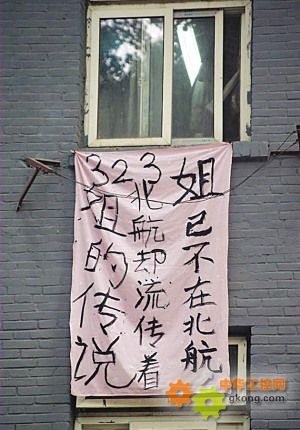 姐已不在北航
北航却流传着
323
姐的传说
中华工控网
gkong.com